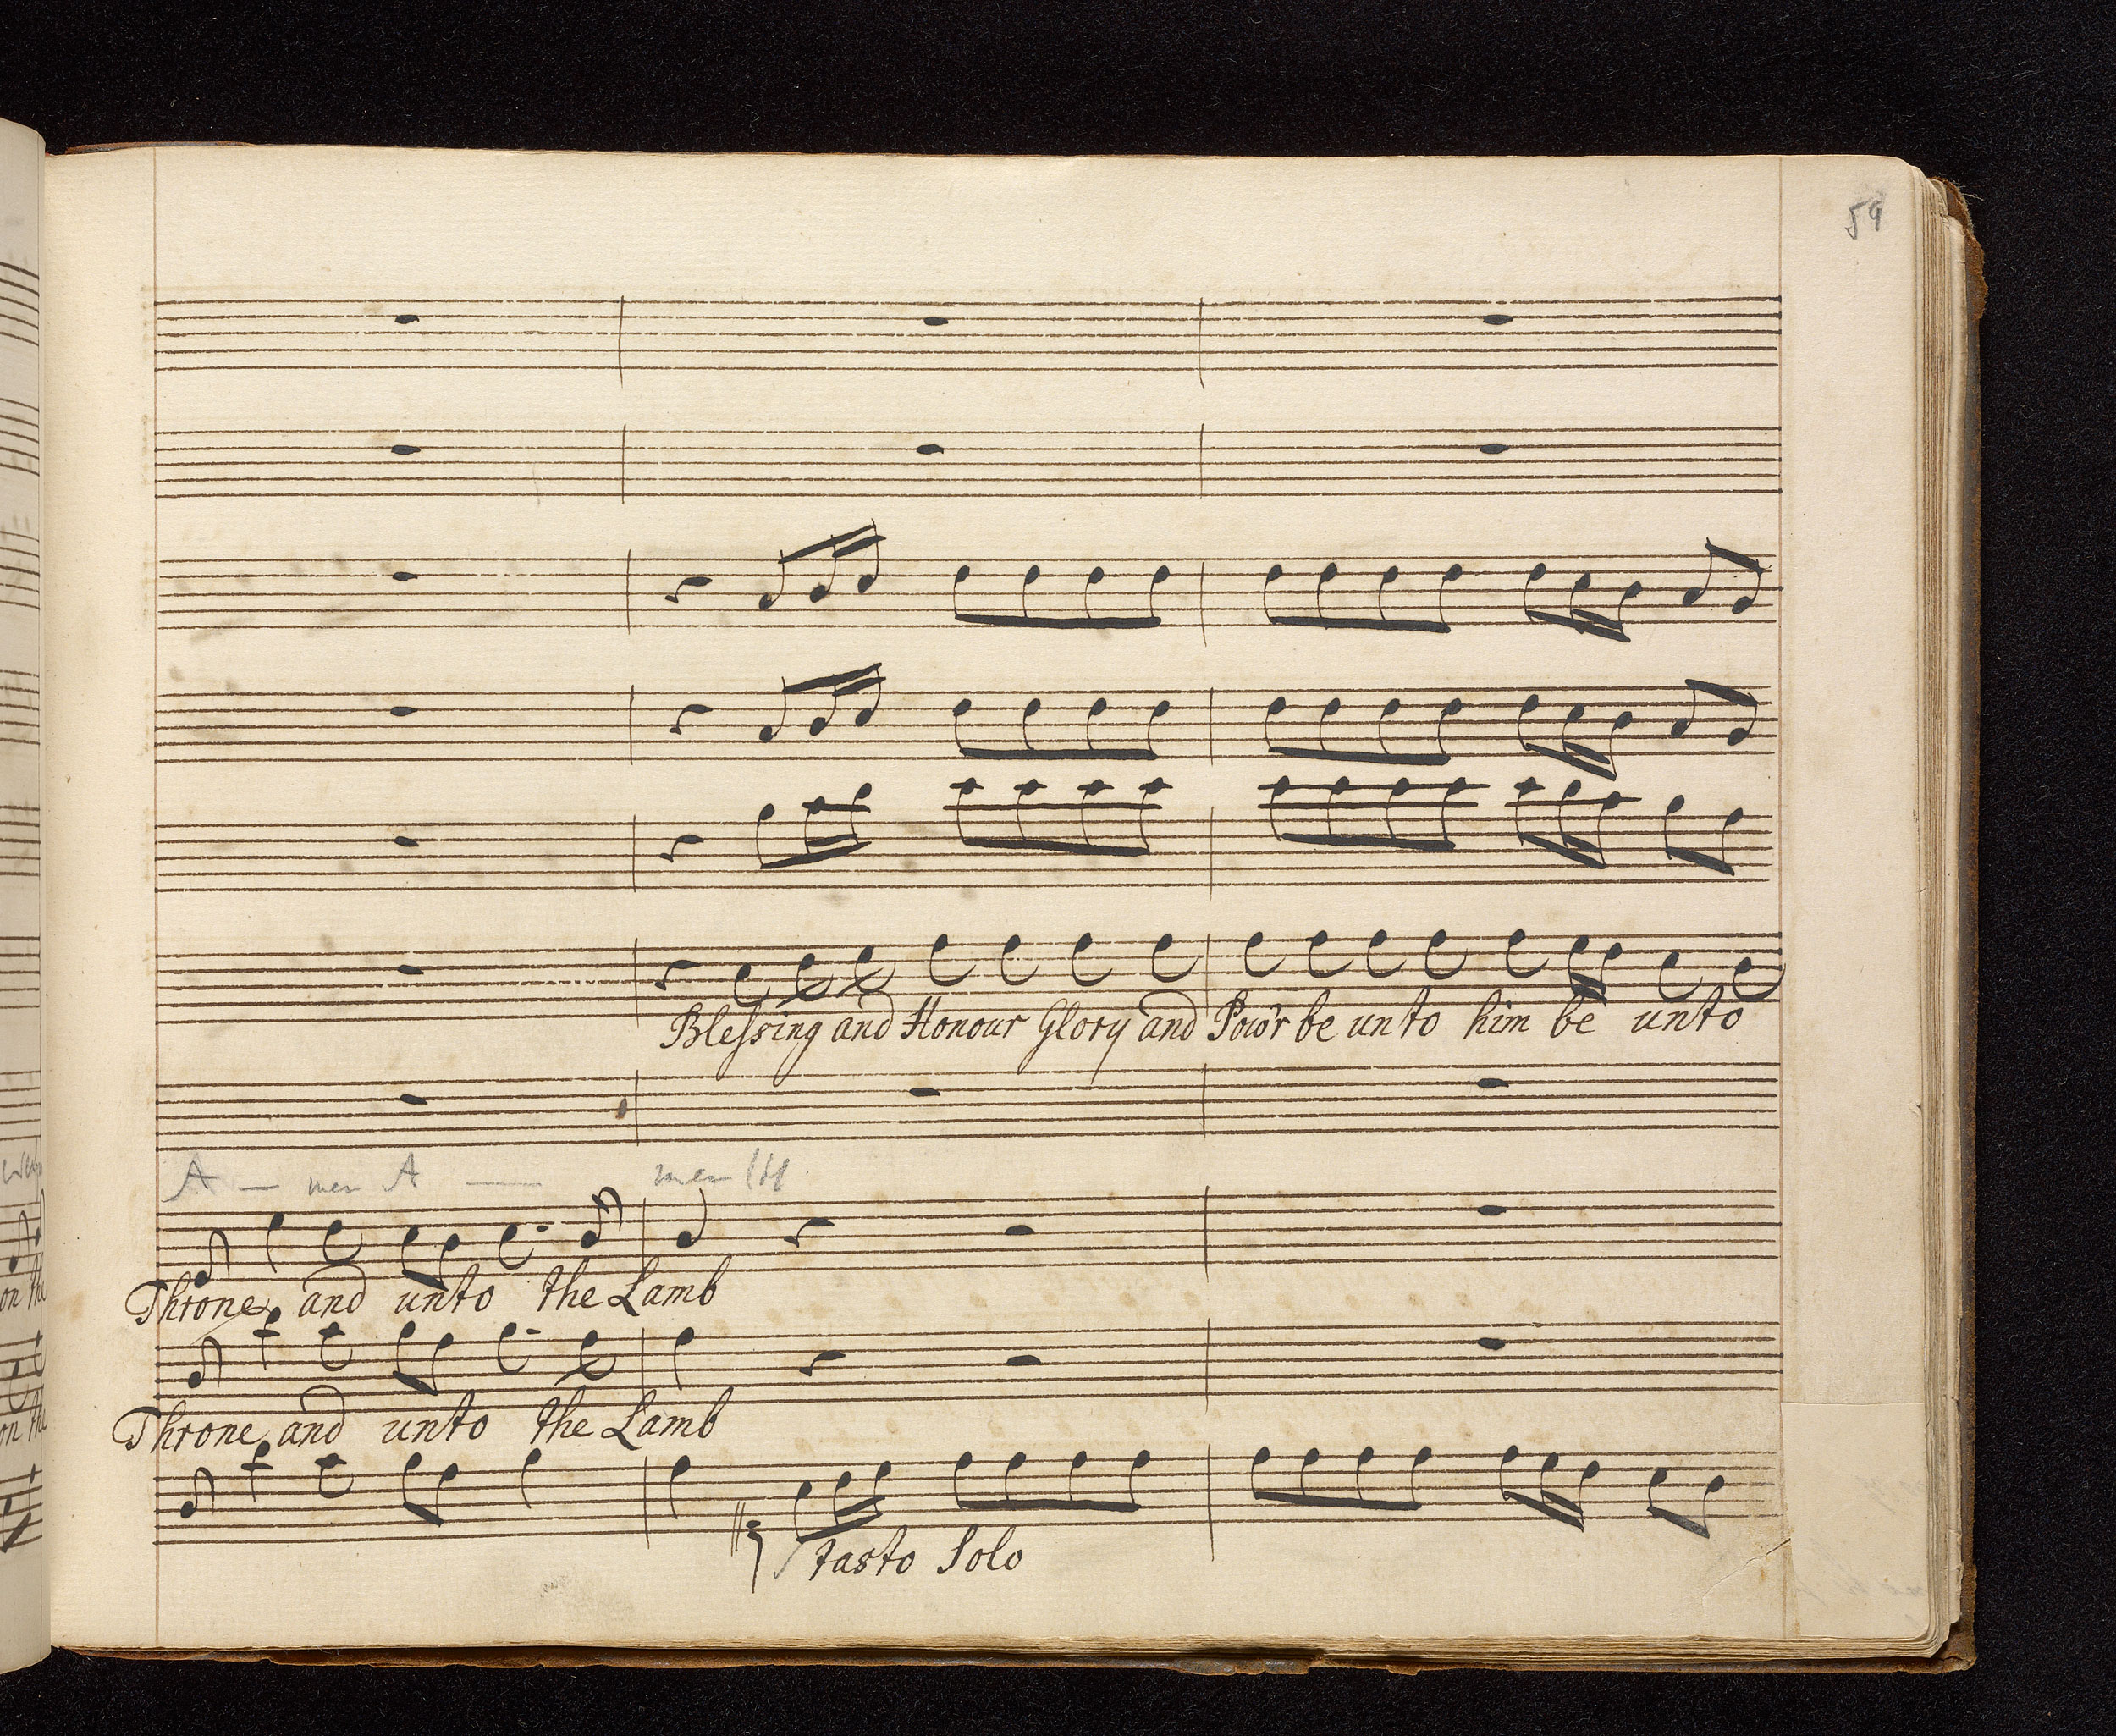 59
Blessing and Honour Glory and Pow'r be unto him be unto
A — men A — men
Throne and unto the Lamb
on the
Throne and unto the Lamb
on the
tasto Solo